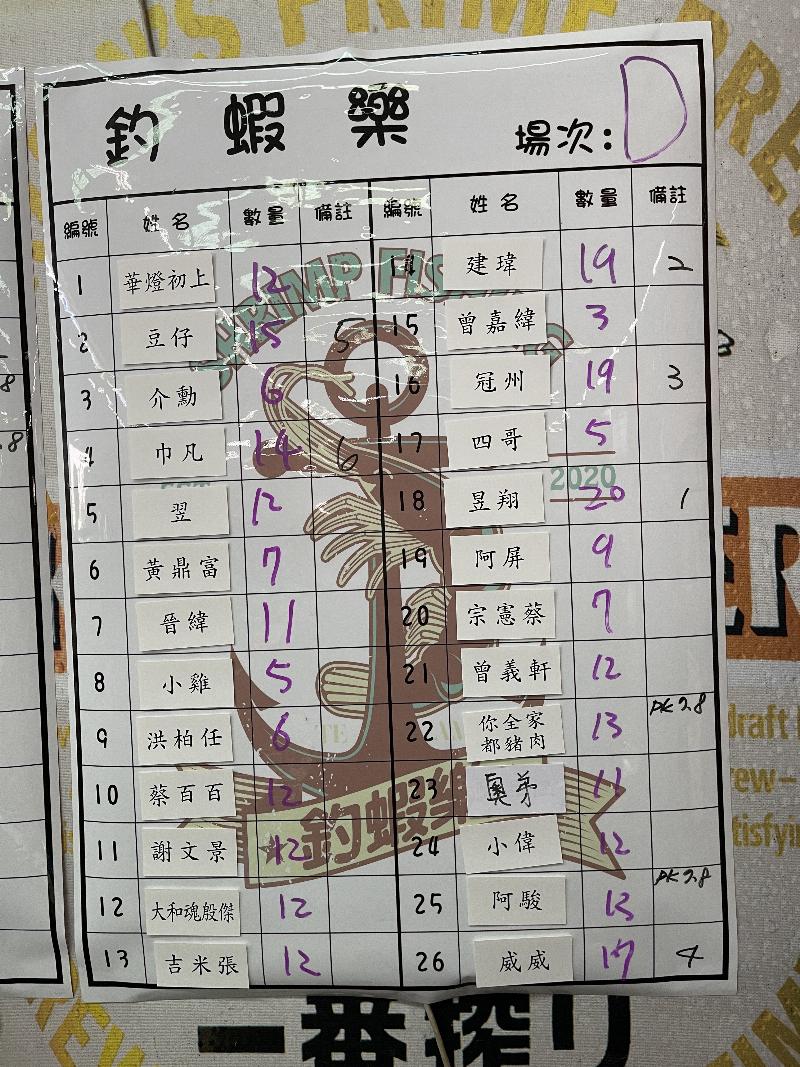 釣蝦樂
場次: D
編號 姓名 數量 備註 編號 姓名 數量 備註
1 華燈初上 12 14 建瑋 19 2
2 豆仔 15 5 15 曾嘉緯 3
3 介勳 6 16 冠州 19 3
4 巾凡 14 6 17 四哥 5
5 翌 12 18 昱翔 20 1
6 黃鼎富 7 19 阿屏 9
7 晉緯 11 20 宗憲蔡 7
8 小雞 5 21 曾義軒 12
9 洪柏任 6 22 你全家都豬肉 13 PK 7.8
10 蔡百百 12 23 奧弟 11
11 謝文景 12 24 小偉 12
12 大和魂殷傑 12 25 阿駿 13 PK 7.8
13 吉米張 12 26 威威 17 4
SHRIMP FIS
2020
釣蝦樂
一番搾り